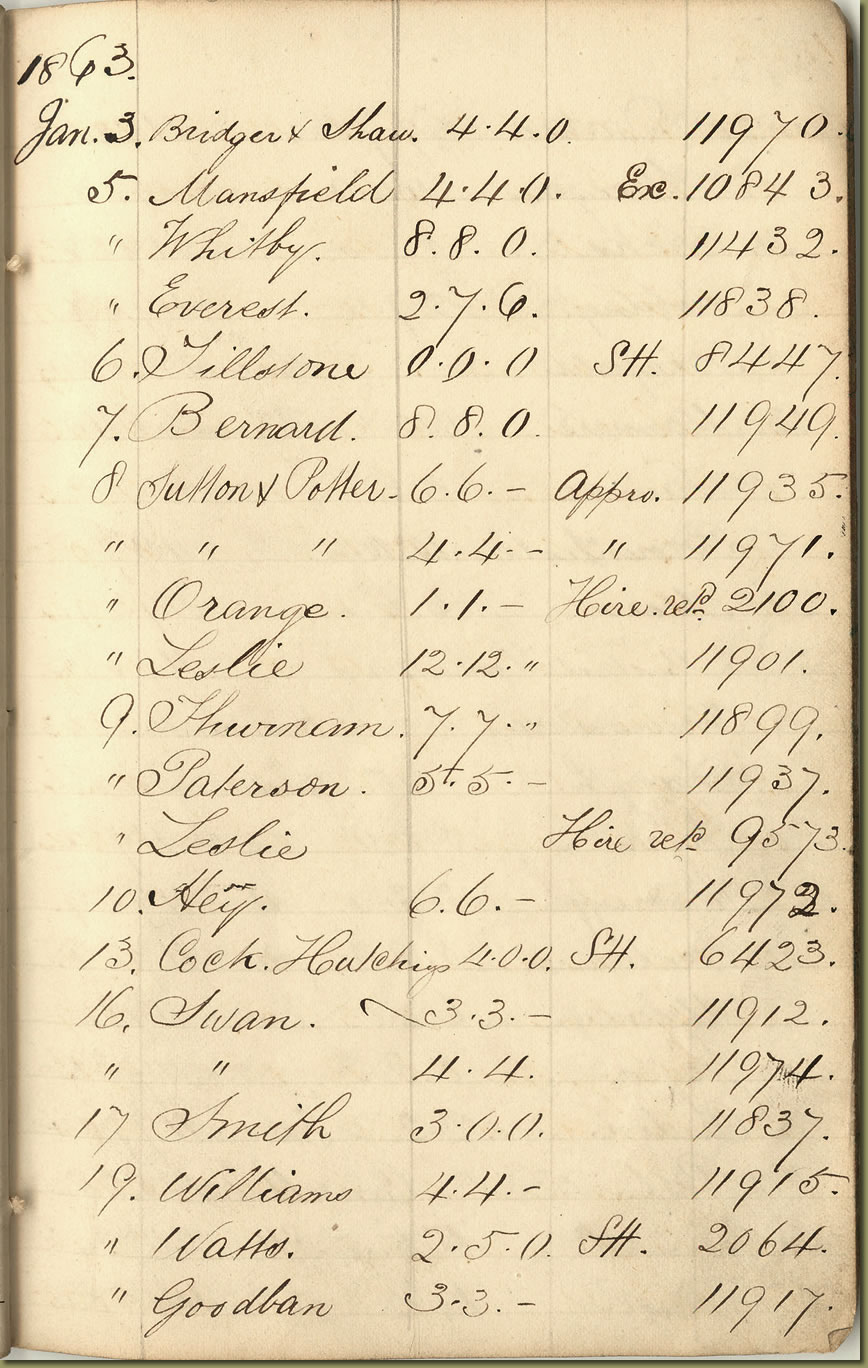 1863.
Jan. 3. Bridger & Shaw. 4.4.0. 11970.
5. Mansfield 4.4.0. Ex. 10843.
" Whitby. 8.8.0. 11432.
" Everest. 2.7.6. 11838.
6. Tillstone 0.0.0 SH. 8447.
7. Bernard. 8.8.0. 11949.
8 Sutton & Potter - 6.6.- Appro. 11935.
" " " 4.4.- " 11971.
" Orange. 1.1.- Hire. retd. 2100.
" Leslie 12.12." 11901.
9. Thurnam. 7.7." 11899.
" Paterson. 5.5.- 11937.
" Leslie Hire retd. 9573.
10. Hey. 6.6.- 11972.
13. Cock. Hutchings 4.0.0. SH. 6423.
16. Swan. 3.3.- 11912.
" " 4.4. 11974.
17 Smith 3.0.0. 11837.
19. Williams 4.4.- 11915.
" Watts. 2.5.0. SH. 2064.
" Goodban 3.3.- 11917.